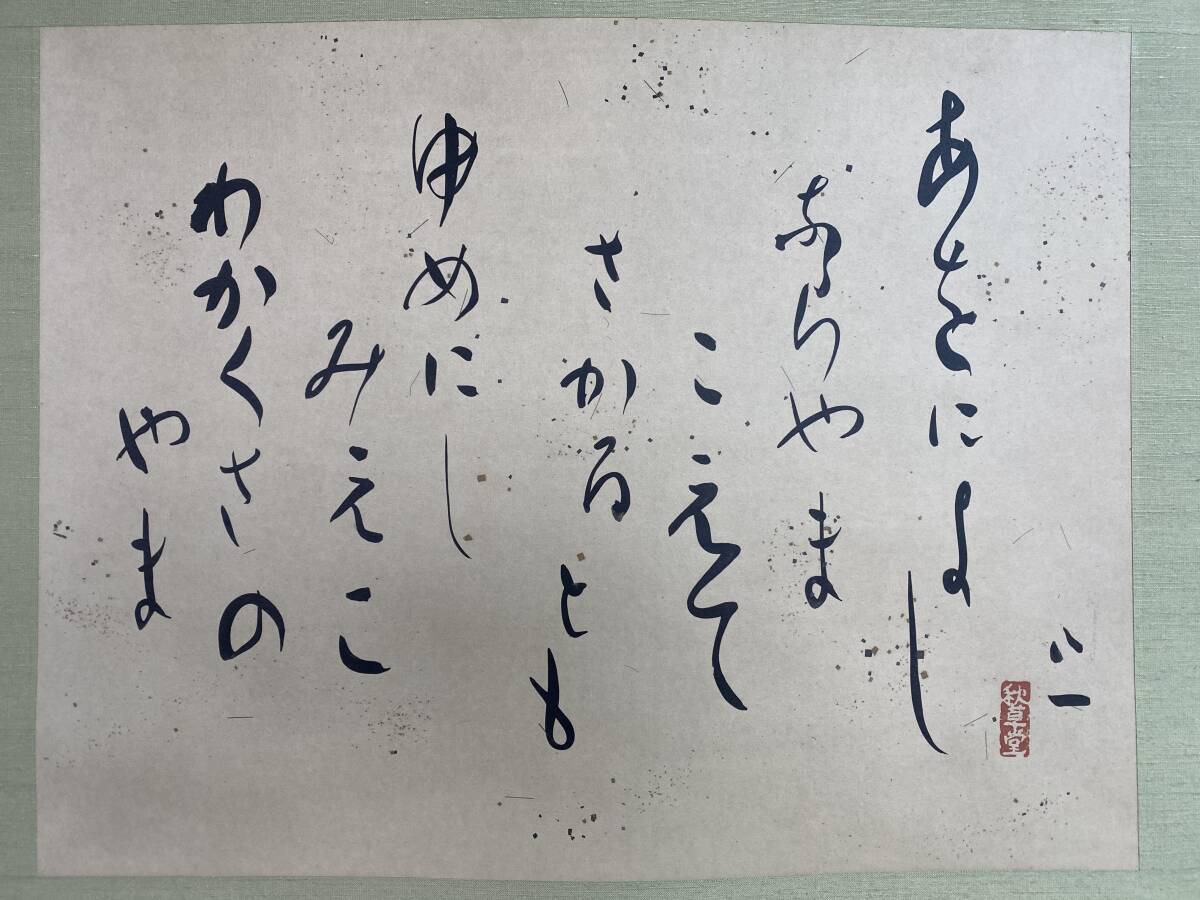 八一
秋草堂
あをによし
ならやま
こえて
さかるとも
ゆめにし
みえこ
わかくさの
やま